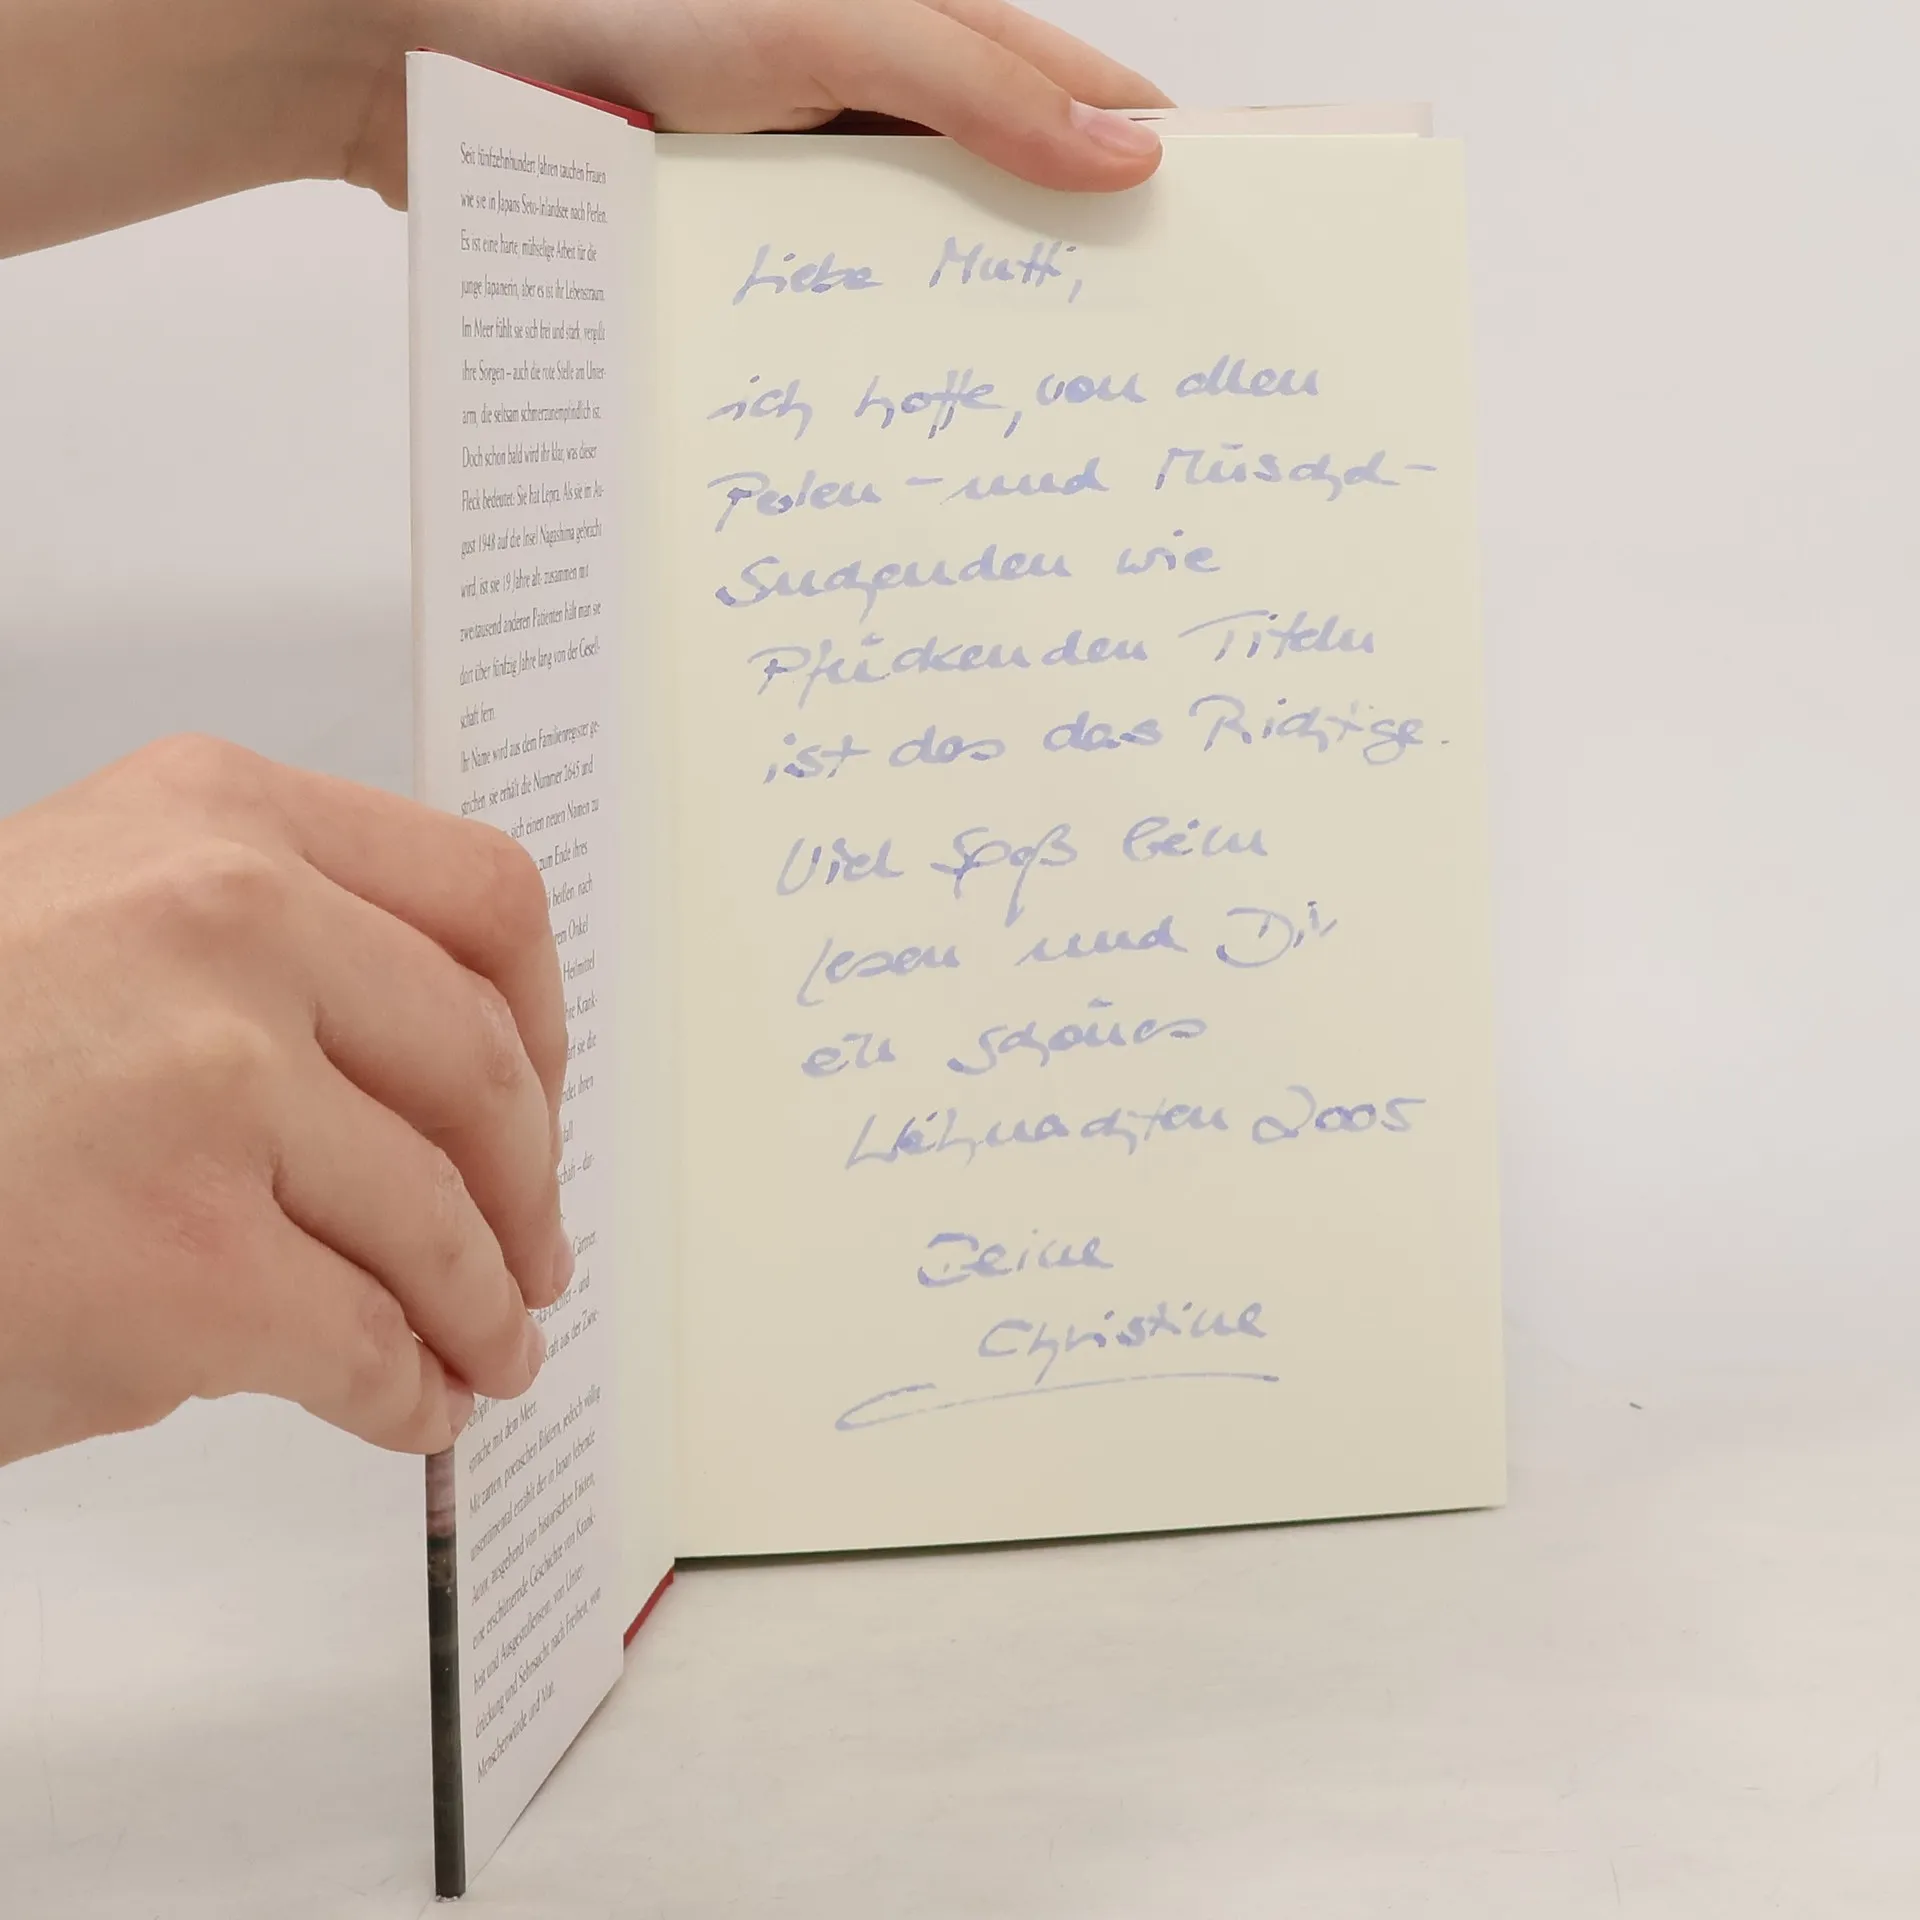 Seit fünfzehnhundert Jahren tauchen Frauen
wie sie in Japans Seto-Inlandsee nach Perlen.
Es ist eine harte, mühselige Arbeit für die
junge Japanerin, aber es ist ihr Lebenstraum.
Im Meer fühlt sie sich frei und stark, vergißt
ihre Sorgen – auch die rote Stelle am Unter-
arm, die seltsam schmerzunempfindlich ist.
Doch schon bald wird ihr klar, was dieser
Fleck bedeutet: Sie hat Lepra. Als sie im Au-
gust 1948 auf die Insel Nagashima gebracht
wird, ist sie 19 Jahre alt; zusammen mit
zweitausend anderen Patienten hält man sie
dort über fünfzig Jahre lang von der Gesell-
schaft fern.
Ihr Name wird aus dem Familienregister ge-
strichen, sie erhält die Nummer 2645 und
sich einen neuen Namen zu
zum Ende ihres
heißen, nach
Onkel
Heilmittel
Krank-
sie die
ihren
schaft – dar-
Gärtner,
und
kraft aus der Zwie-
sprache mit dem Meer.
Mit zarten, poetischen Bildern, jedoch völlig
unsentimental erzählt der in Japan lebende
Autor, ausgehend von historischen Fakten,
eine erschütternde Geschichte von Krank-
heit und Ausgestoßensein, von Unter-
drückung und Sehnsucht nach Freiheit, von
Menschenwürde und Mut.
Liebe Mutti,
ich hoffe, von allen
Perlen- und Muschel-
Suchenden wie
Pflückenden Titeln
ist das das Richtige.
Viel Spaß beim
Lesen und Dir
ein schönes
Weihnachten 2005
Deine
Christine